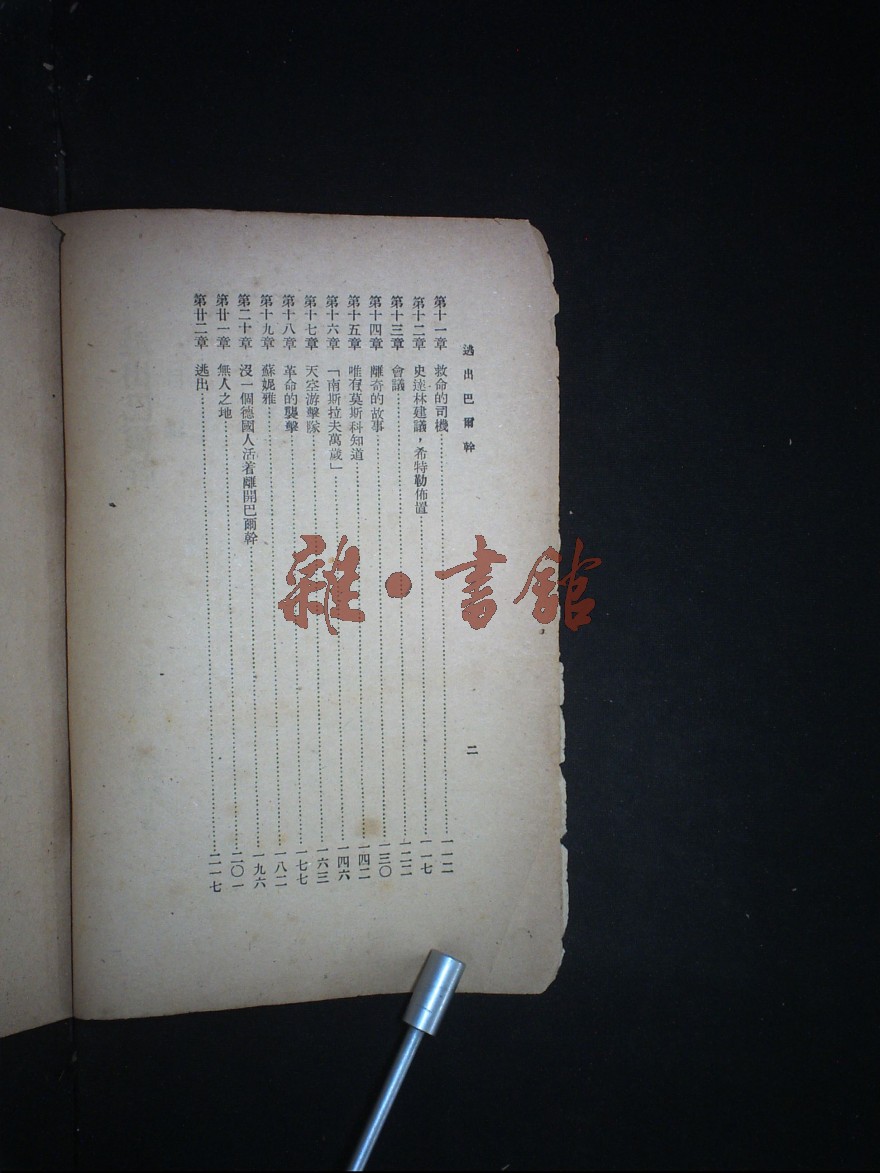 逃出巴爾幹
二
第十一章 救命的司機……一一二
第十二章 史達林建議，希特勒佈置……一一七
第十三章 會議……一二二
第十四章 離奇的故事……一三〇
第十五章 唯有莫斯科知道……一四二
第十六章 「南斯拉夫萬歲」……一四六
第十七章 天空游擊隊……一六三
第十八章 革命的襲擊……一七七
第十九章 蘇妮雅……一八二
第二十章 沒一個德國人活着離開巴爾幹……一九六
第廿一章 無人之地……二〇一
第廿二章 逃出……二一七
雜·書館